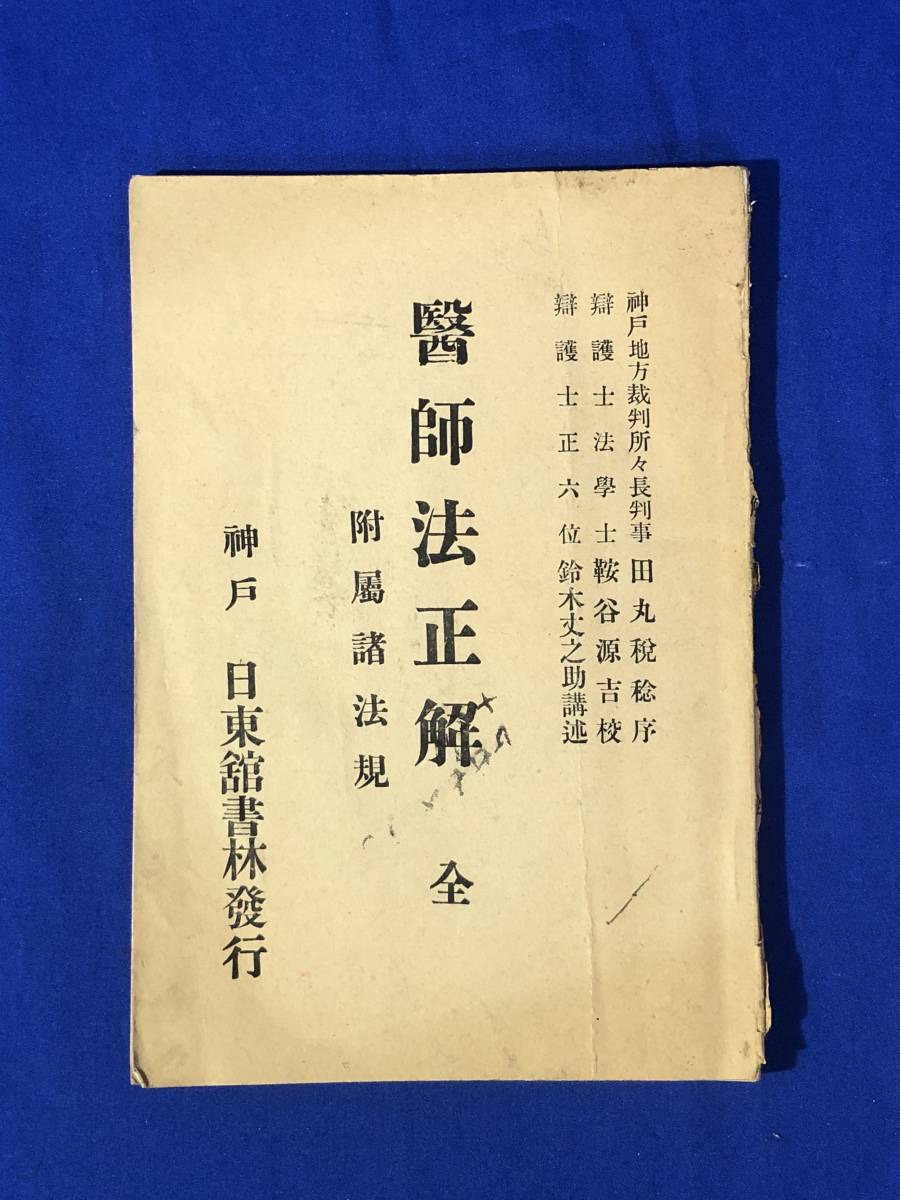 神戸地方裁判所々長判事田丸税稔序
辯護士法學士鞍谷源吉校
辯護士正六位鈴木丈之助講述
醫師法正解 全
附屬諸法規
神戸 日東舘書林發行